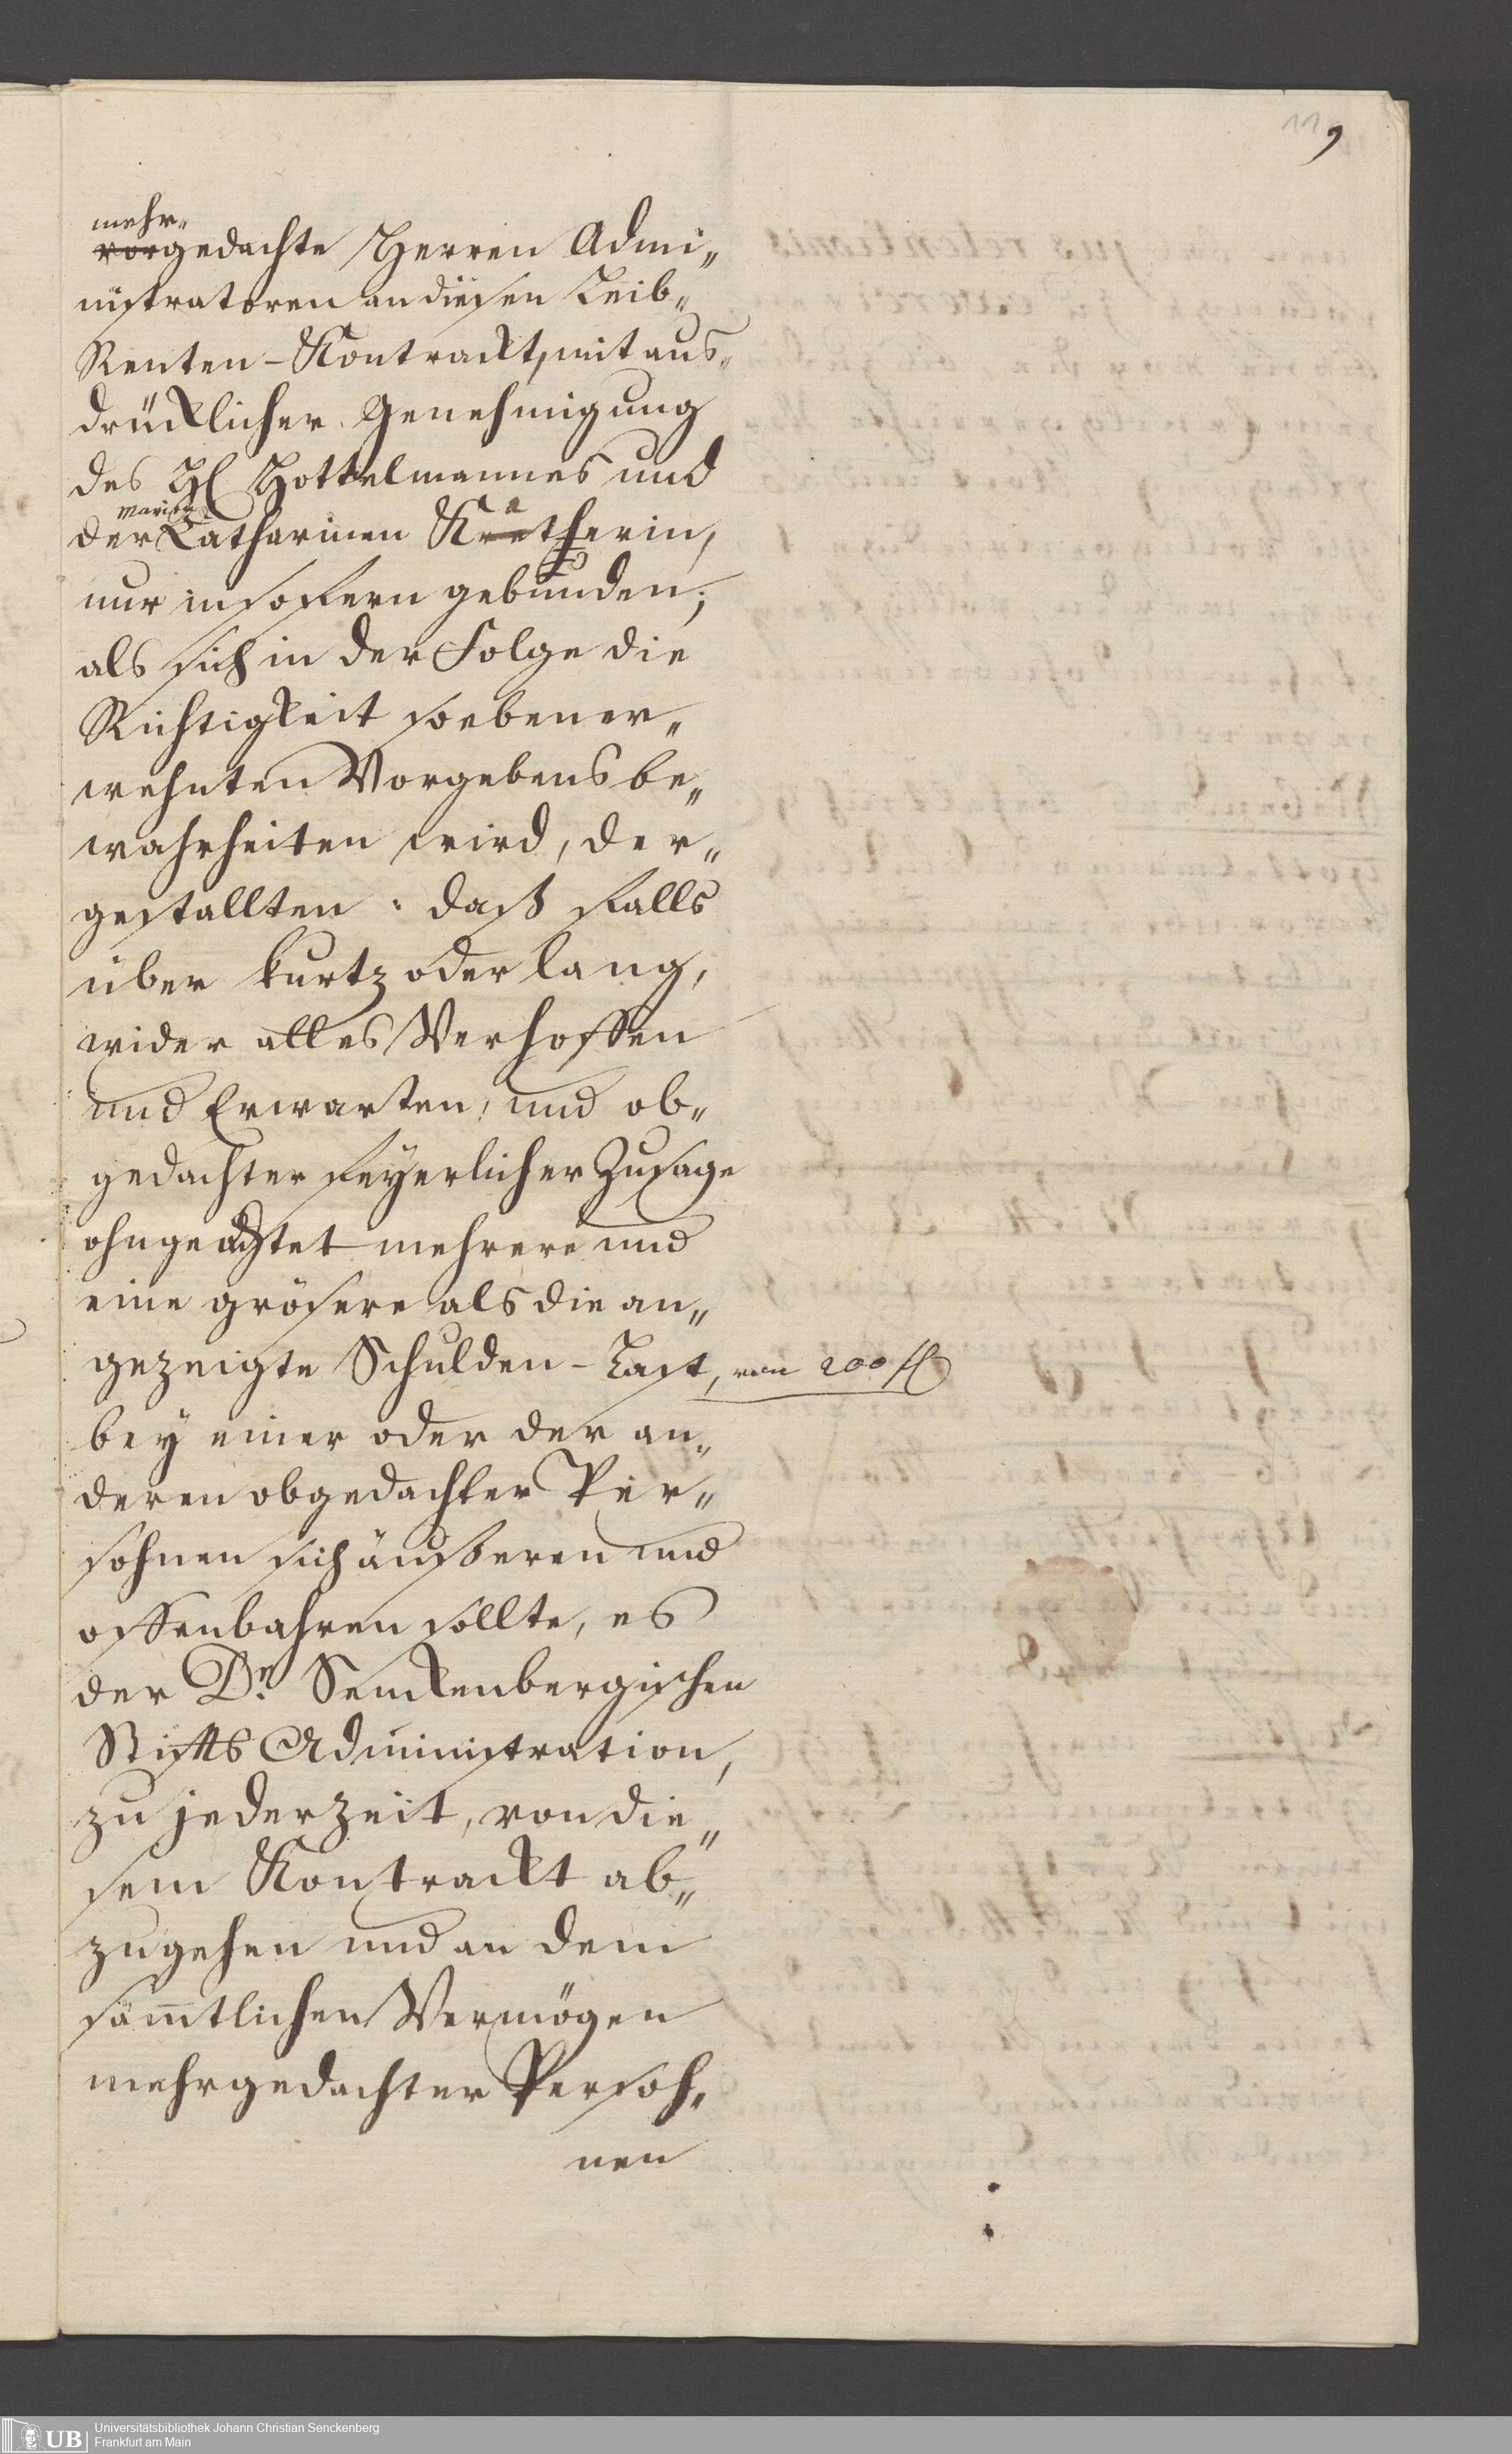 119
mehr„
vorgedachte Herren Admi„
nistratoren an diesen Leib„
Renten-Kontrackt, mit aus„
drücklicher Genehmigung
des H. Hottelmannes und
Marien
der Catharinen Kretherin,
a
nur in sofern gebunden;
als sich in der Folge die
Richtigkeit soebener„
wehnten Vorgebens be„
wahrheiten wird, der„
gestallten: daß falls
über kurtz oder lang,
wider alles Verhoffen
und Erwarten, und ob„
gedachter feyerlicher Zusage
ohngeachtet mehrere und
eine grösere als die an„
gezeigte Schulden-Last, von 200 fl
bey einer oder der an„
deren obgedachter Per„
sohnen sich äusseren und
offenbahren sollte, es
der Dr. Senckenbergischen
Stiffts Administration,
zu jederzeit, von die„
sem Kontrackt ab„
zugehen und an dem
sämtlichen Vermögen
mehrgedachter Persoh„
nen
UB
Universitätsbibliothek Johann Christian Senckenberg
Frankfurt am Main